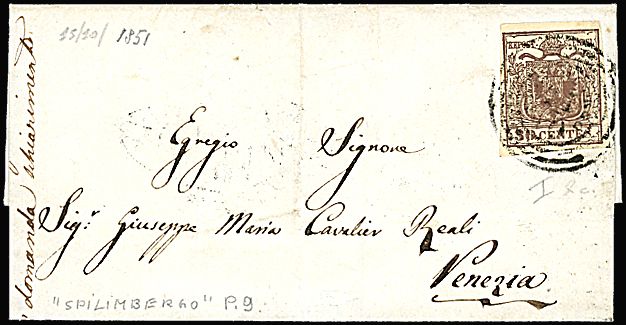 15/10/ 1851
KKPOST-STEMPEL
30 CENTES
I
Egregio Signore
Sigr. Giuseppe Maria Cavalier Reali
Venezia
"SPILIMBERGO" P.9
"domanda schiarimento.